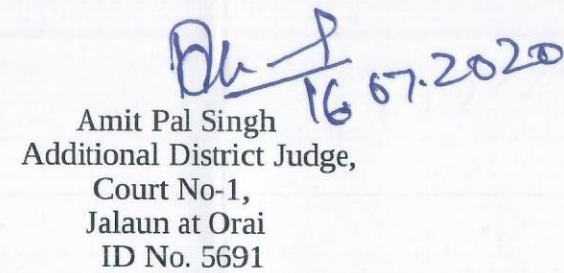 16.07.2020
Amit Pal Singh
Additional District Judge,
Court No-1,
Jalaun at Orai
ID No. 5691